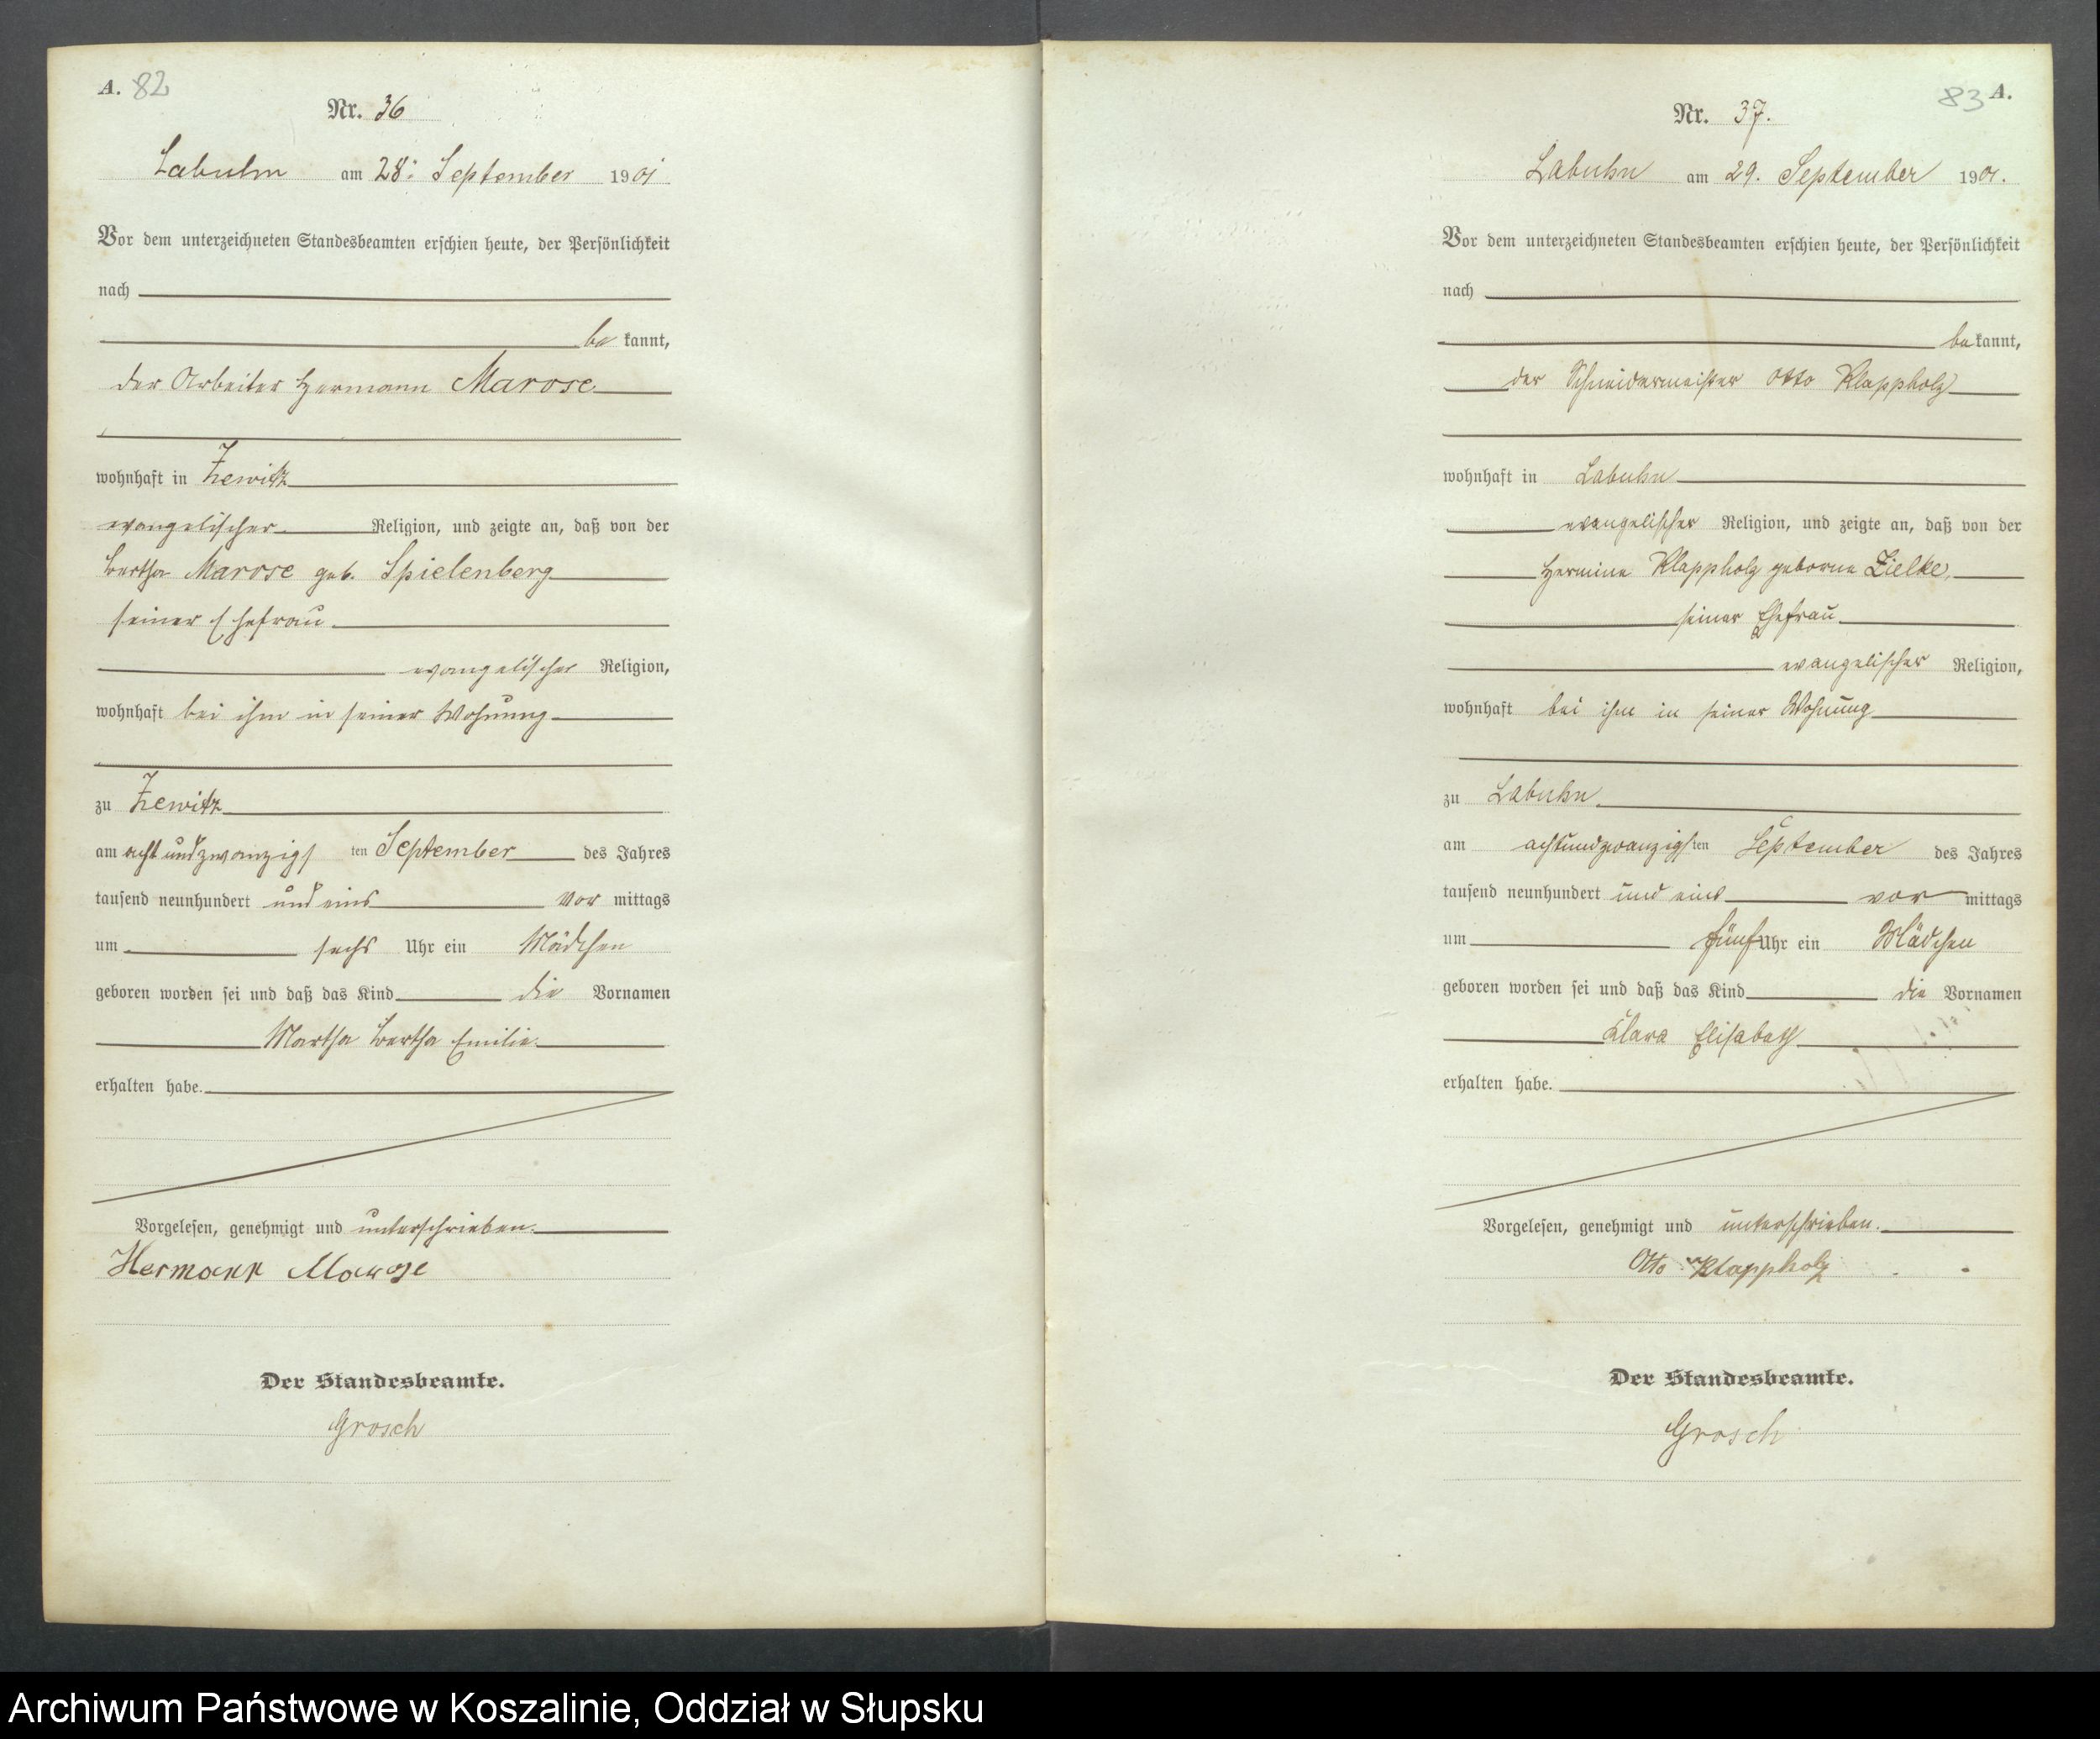 A. 82
Nr. 36
Labuhn am 28. September 1901
Vor dem unterzeichneten Standesbeamten erschien heute, der Persönlichkeit
nach
be kannt,
der Arbeiter Hermann Marose
wohnhaft in Zewitz
evangelischer Religion, und zeigte an, daß von der
Bertha Marose geb. Spielenberg
seiner Ehefrau
evangelischer Religion,
wohnhaft bei ihm in seiner Wohnung
zu Zewitz
am acht undzwanzigs ten September des Jahres
tausend neunhundert und eins vor mittags
um sechs Uhr ein Mädchen
geboren worden sei und daß das Kind die Vornamen
Martha Bertha Emilie
erhalten habe.
Vorgelesen, genehmigt und unterschrieben.
Hermann Marose
Der Standesbeamte.
Grosch
83 A.
Nr. 37.
Labuhn am 29. September 1901.
Vor dem unterzeichneten Standesbeamten erschien heute, der Persönlichkeit
nach
be kannt,
der Schneidermeister Otto Klappholz
wohnhaft in Labuhn
evangelischer Religion, und zeigte an, daß von der
Hermine Klappholz geborne Zielke,
seiner Ehefrau
evangelischer Religion,
wohnhaft bei ihm in seiner Wohnung
zu Labuhn
am achtundzwanzigs ten September des Jahres
tausend neunhundert und eins vor mittags
um fünf Uhr ein Mädchen
geboren worden sei und daß das Kind die Vornamen
Klara Elisabeth
erhalten habe.
Vorgelesen, genehmigt und unterschrieben.
Otto Klappholz
Der Standesbeamte.
Grosch
Archiwum Państwowe w Koszalinie, Oddział w Słupsku